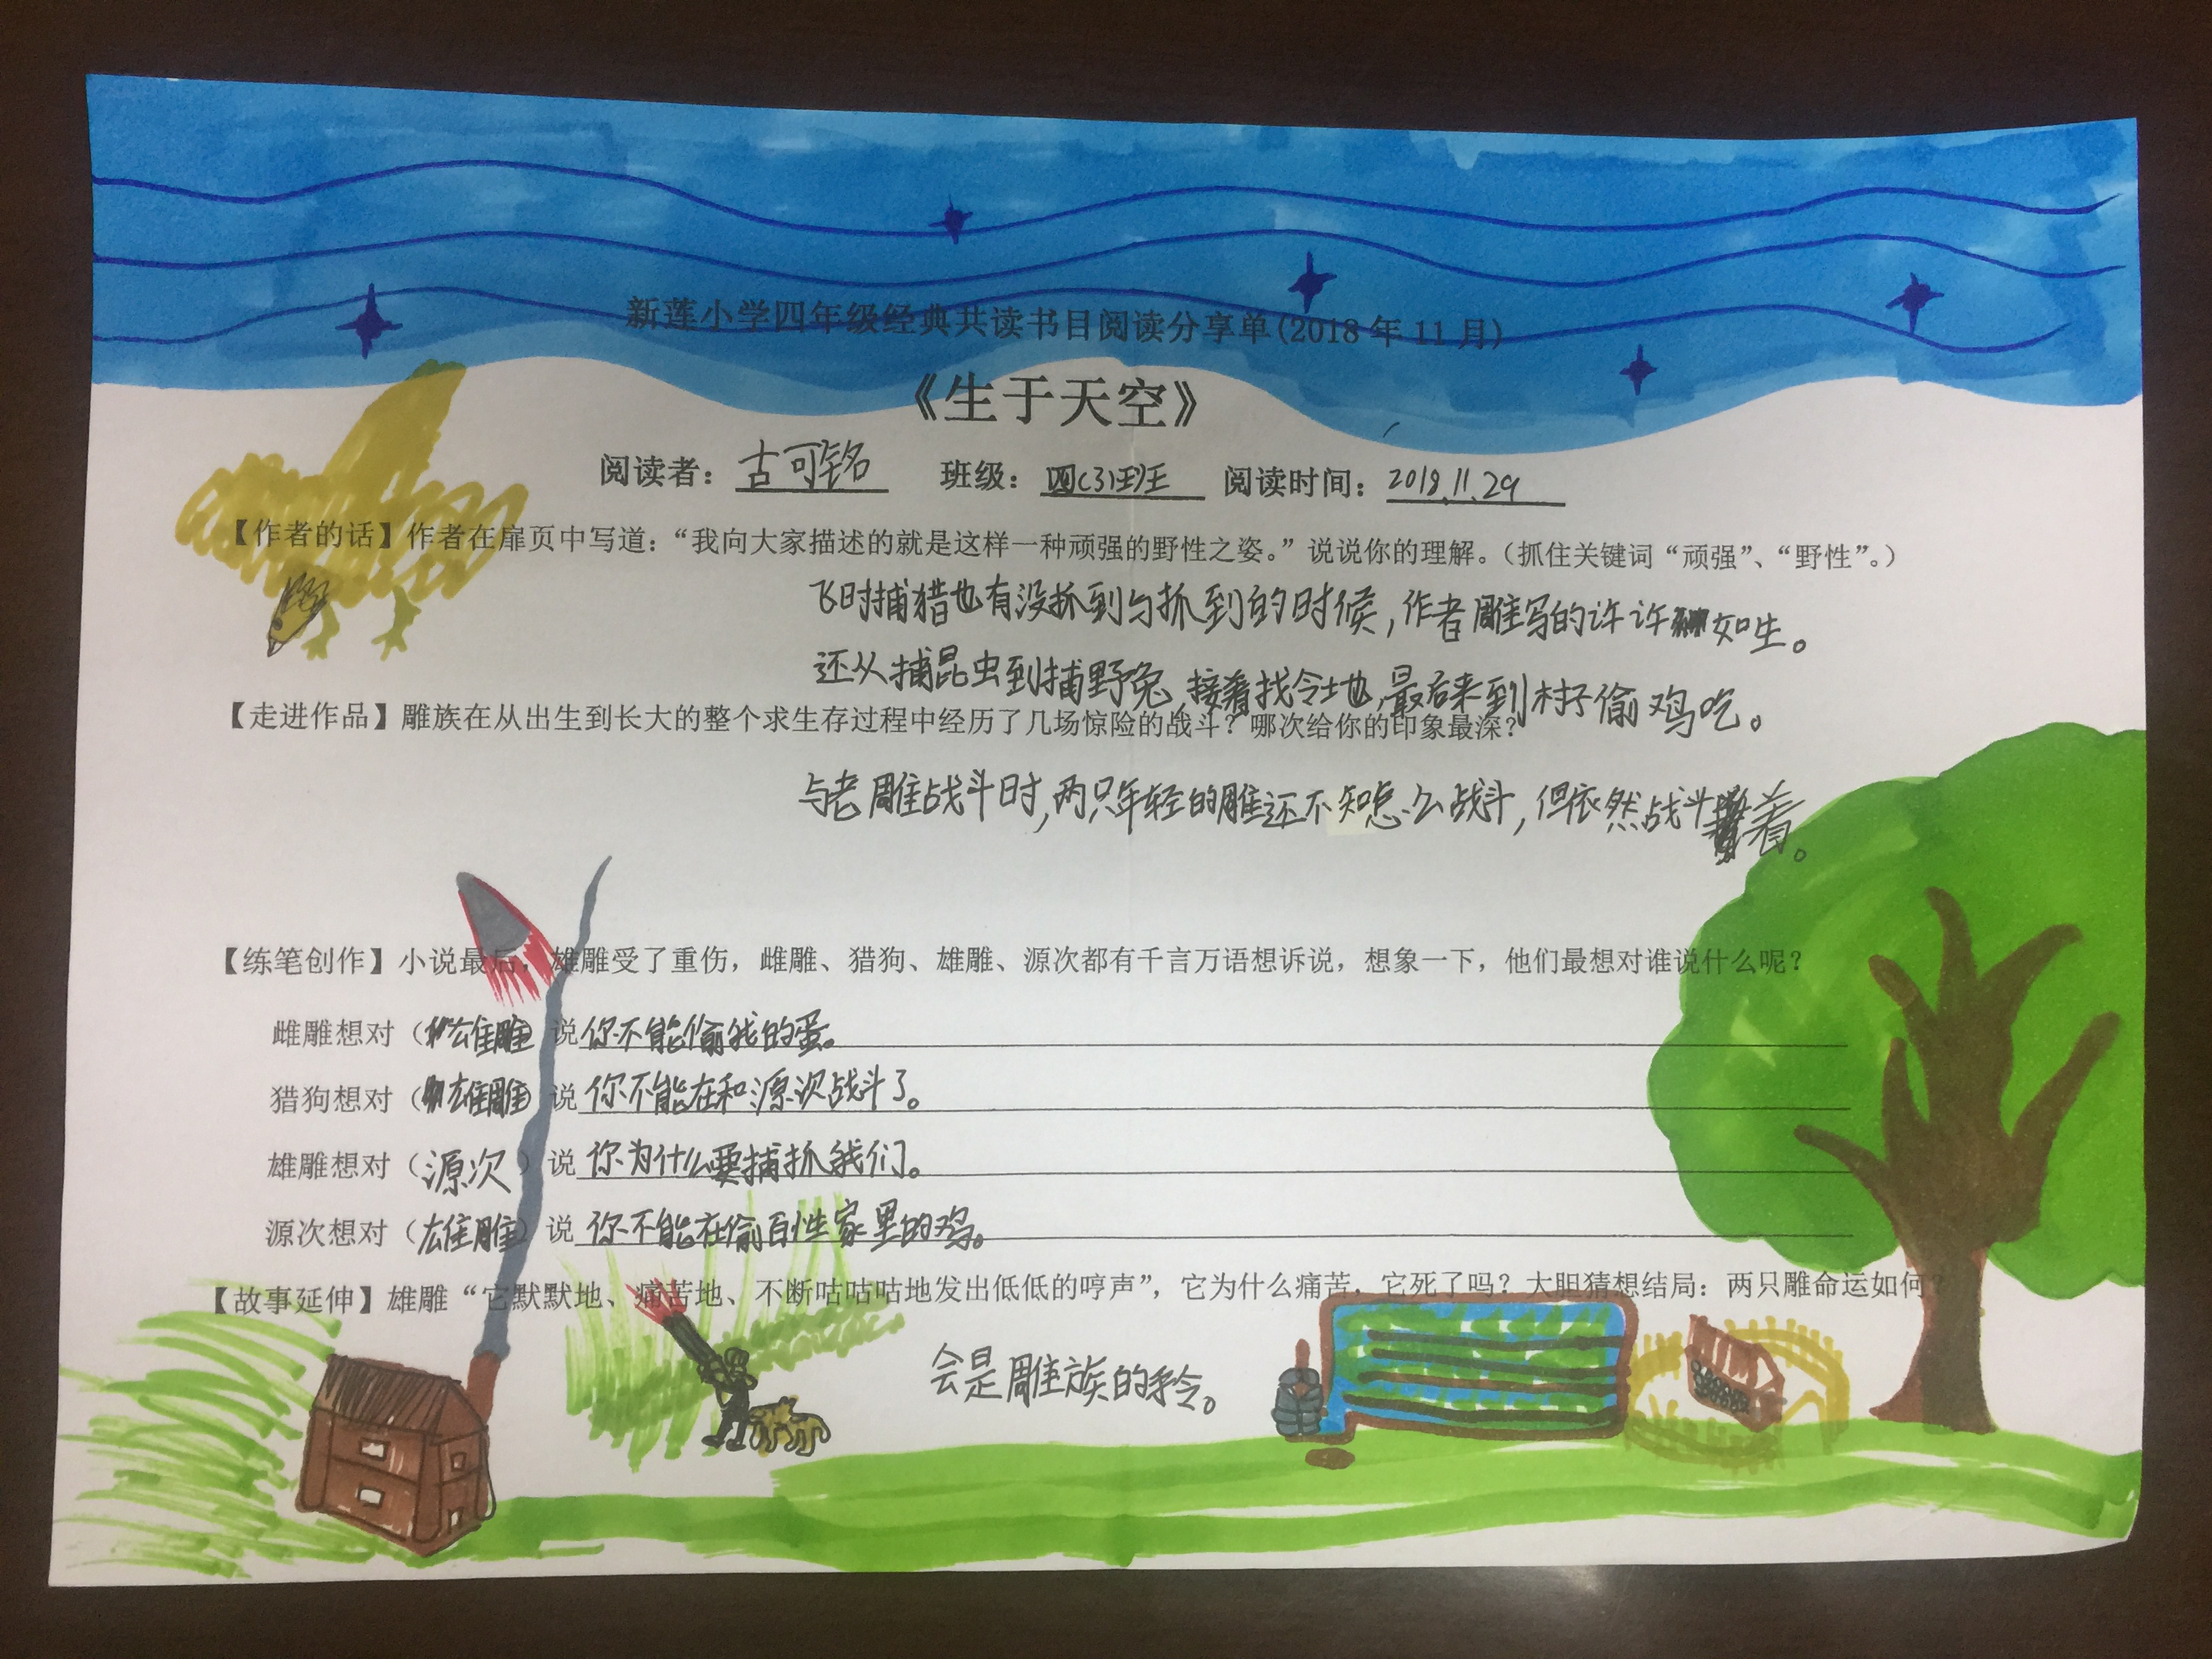 新莲小学四年级经典共读书目阅读分享单(2018年11月)
《生于天空》
阅读者：古可铭 班级：四(3)班 阅读时间：2018.11.29
【作者的话】作者在扉页中写道：“我向大家描述的就是这样一种顽强的野性之姿。”说说你的理解。（抓住关键词“顽强”、“野性”。）
飞时捕猎也有没抓到与抓到的时候，作者雕写的许许如生。
还从捕昆虫到捕野兔，接着找令地，最后来到村子偷鸡吃。
【走进作品】雕族在从出生到长大的整个求生存过程中经历了几场惊险的战斗？哪次给你的印象最深？
与老雕战斗时，两只年轻的雕还不知怎么战斗，但依然战斗着。
【练笔创作】小说最后，雄雕受了重伤，雌雕、猎狗、雄雕、源次都有千言万语想诉说，想象一下，他们最想对谁说什么呢？
雌雕想对（雄雕）说你不能偷我的蛋。
猎狗想对（雄雕）说你不能在和源次战斗了。
雄雕想对（源次）说你为什么要捕抓我们。
源次想对（雄雕）说你不能在偷百性家里的鸡。
【故事延伸】雄雕“它默默地、痛苦地、不断咕咕咕地发出低低的哼声”，它为什么痛苦，它死了吗？大胆猜想结局：两只雕命运如何？
会是雕族的